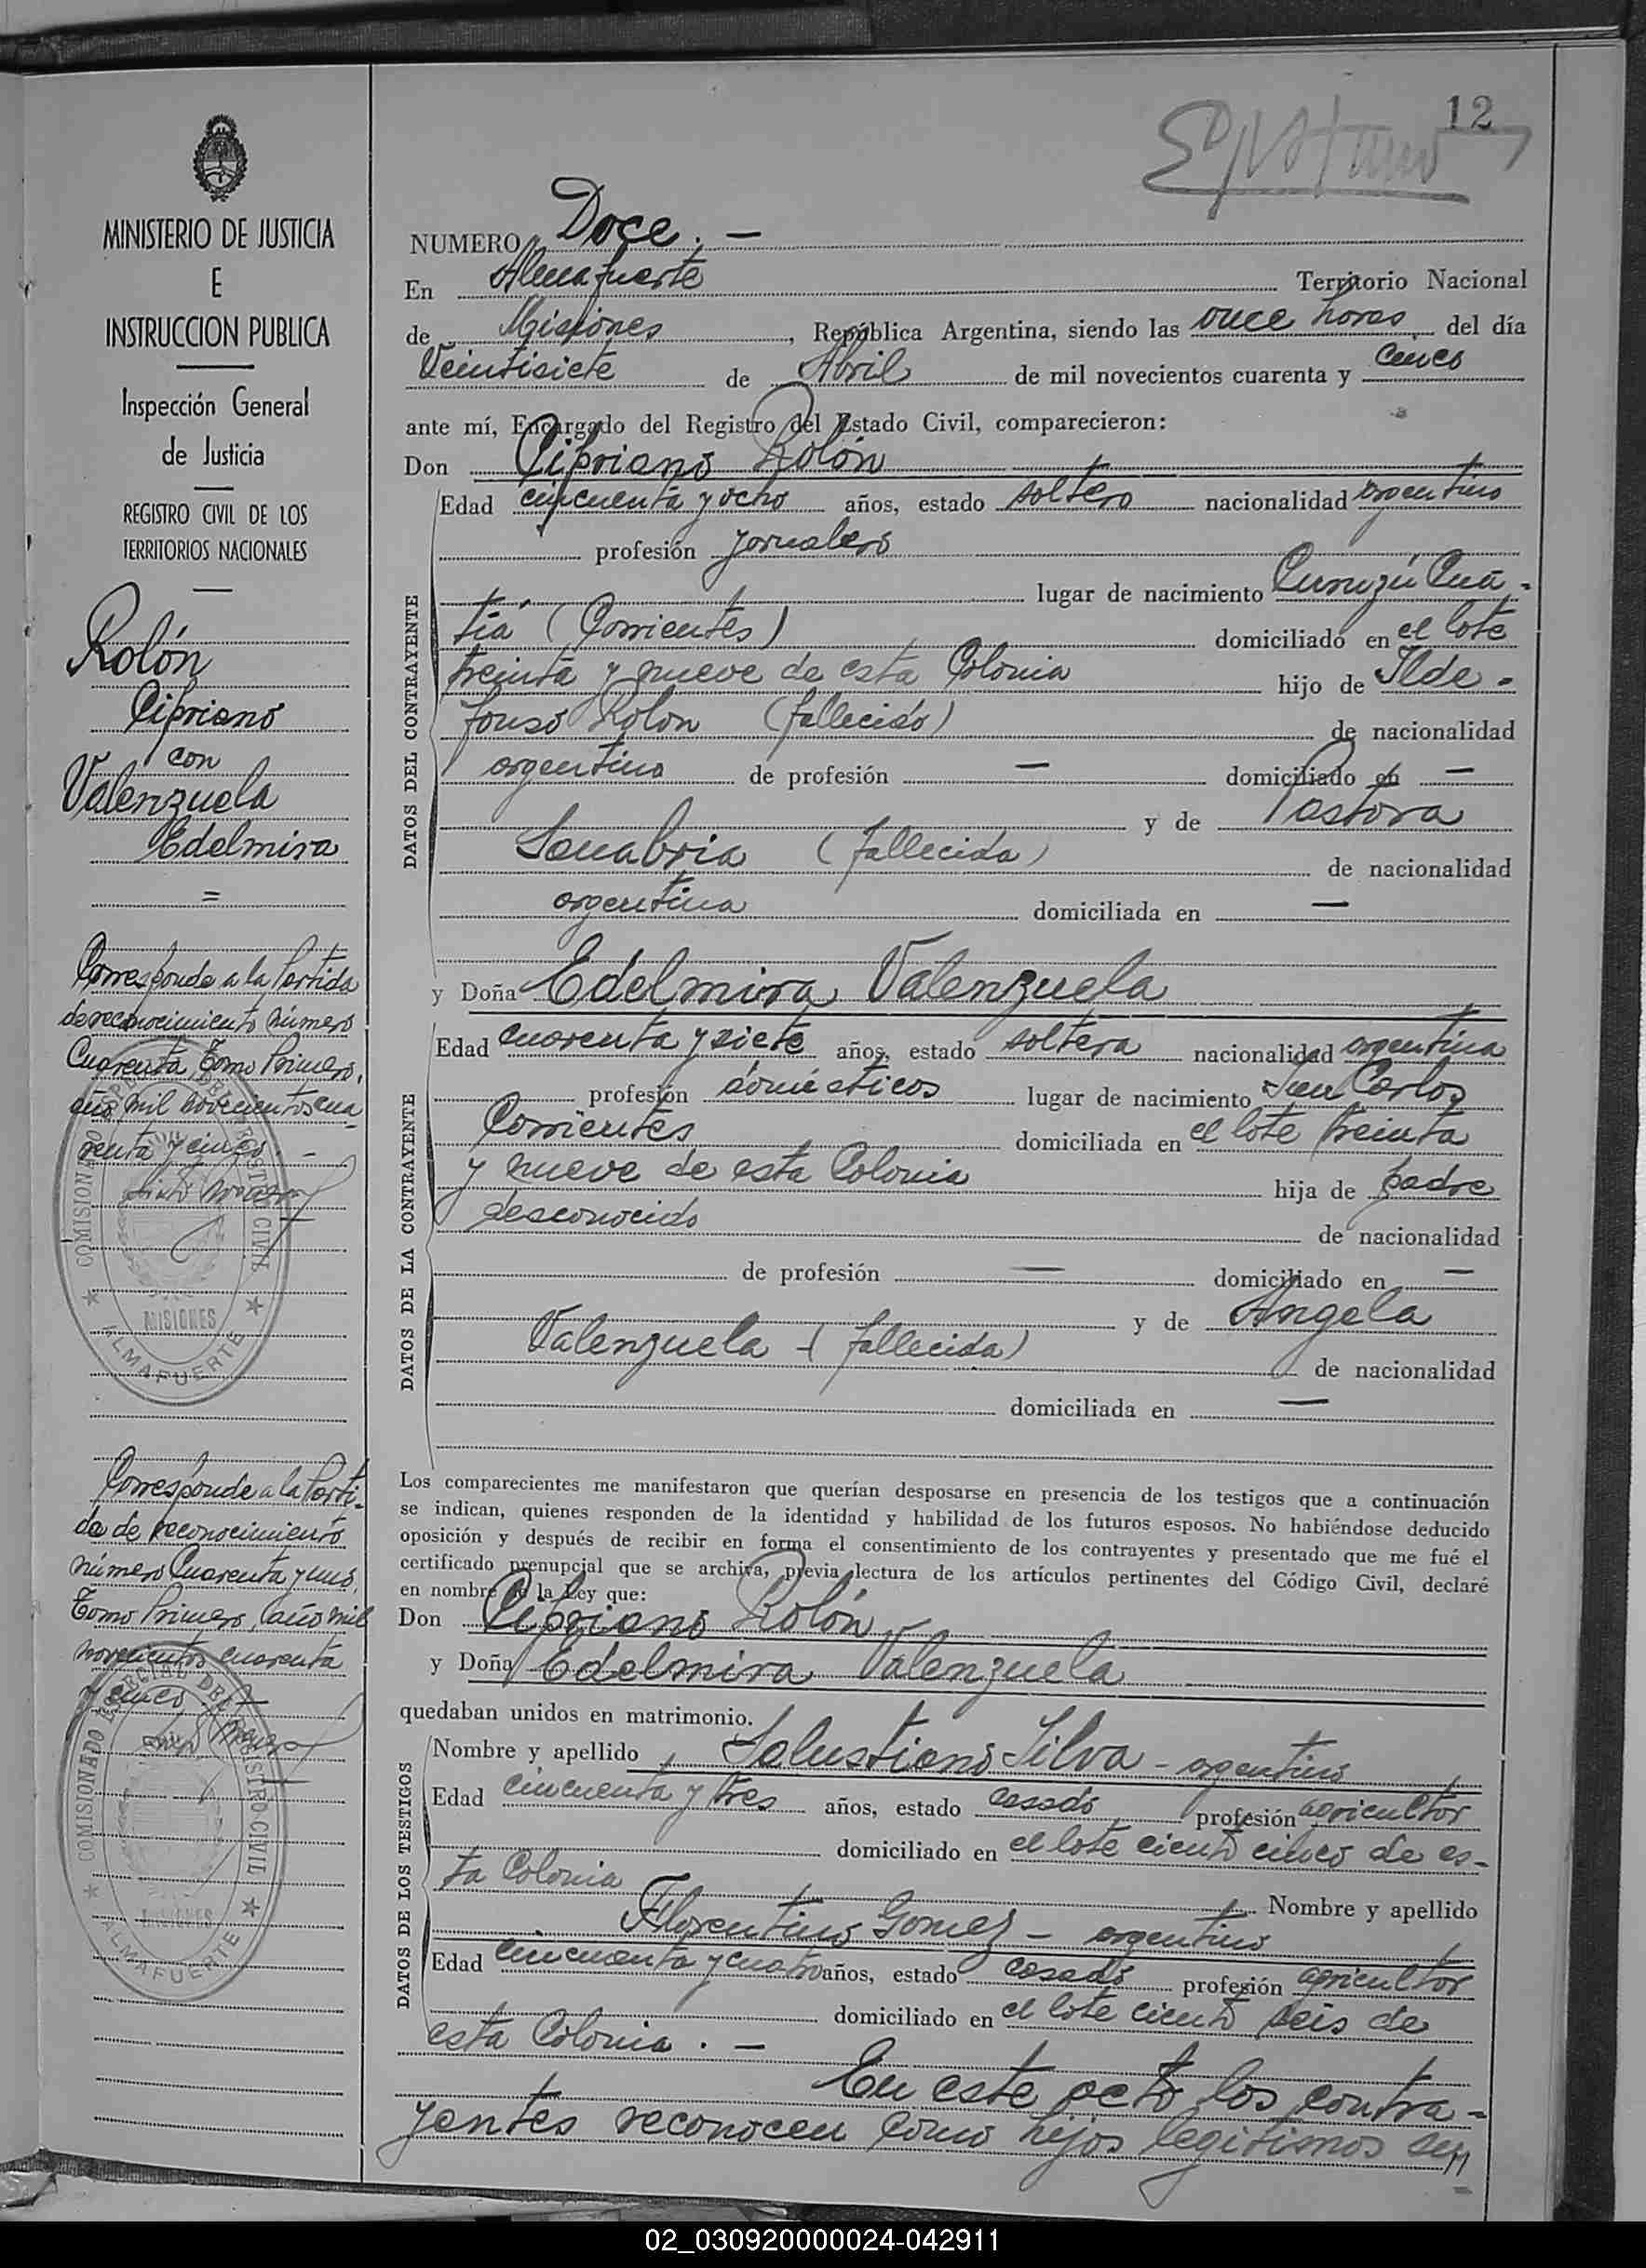 12
NUMERO Doce. —
En Almafuerte Territorio Nacional
de Misiones, República Argentina, siendo las once horas del día
Veintisiete de Abril de mil novecientos cuarenta y cinco
ante mí, Encargado del Registro del Estado Civil, comparecieron:
Don Cipriano Rolón
Edad cincuenta y ocho años, estado soltero nacionalidad argentino
profesión jornalero
lugar de nacimiento Curuzú Cuá-
tiá (Corrientes) domiciliado en el lote
treinta y nueve de esta Colonia hijo de Ilde-
fonso Rolon (fallecido) de nacionalidad
argentino de profesión — domiciliado en —
y de Pastora
Sanabria (fallecida) de nacionalidad
argentina domiciliada en —
y Doña Edelmira Valenzuela
Edad cuarenta y siete años, estado soltera nacionalidad argentina
profesión domésticos lugar de nacimiento San Carlos
Corrientes domiciliada en el lote treinta
y nueve de esta Colonia hija de padre
desconocido de nacionalidad
de profesión — domiciliado en —
y de Angela
Valenzuela (fallecida) de nacionalidad
domiciliada en —
Los comparecientes me manifestaron que querían desposarse en presencia de los testigos que a continuación
se indican, quienes responden de la identidad y habilidad de los futuros esposos. No habiéndose deducido
oposición y después de recibir en forma el consentimiento de los contrayentes y presentado que me fué el
certificado prenupcial que se archiva, previa lectura de los artículos pertinentes del Código Civil, declaré
en nombre de la Ley que:
Don Cipriano Rolón
y Doña Edelmira Valenzuela
quedaban unidos en matrimonio.
Nombre y apellido Salustiano Silva - argentino
Edad cincuenta y tres años, estado casado profesión agricultor
domiciliado en el lote ciento cinco de es-
ta Colonia Nombre y apellido
Florentino Gomez - argentino
Edad cincuenta y cuatro años, estado casado profesión agricultor
domiciliado en el lote ciento seis de
esta Colonia. —
En este acto los contra-
yentes reconocen como hijos legitimos su
DATOS DEL CONTRAYENTE
DATOS DE LA CONTRAYENTE
DATOS DE LOS TESTIGOS
MINISTERIO DE JUSTICIA
E
INSTRUCCION PUBLICA
Inspección General
de Justicia
REGISTRO CIVIL DE LOS
TERRITORIOS NACIONALES
Rolón
Cipriano
con
Valenzuela
Edelmira
=
Corresponde a la Partida
de reconocimiento número
Cuarenta, Tomo Primero,
año mil novecientos cua-
renta y cinco. -
COMISIONADO ESPECIAL DEL REGISTRO CIVIL
MISIONES
ALMAFUERTE
Corresponde a la Parti-
da de reconocimiento
número Cuarenta y uno,
Tomo Primero, año mil
novecientos cuarenta
y cinco. -
COMISIONADO ESPECIAL DEL REGISTRO CIVIL
MISIONES
ALMAFUERTE
02_030920000024-042911